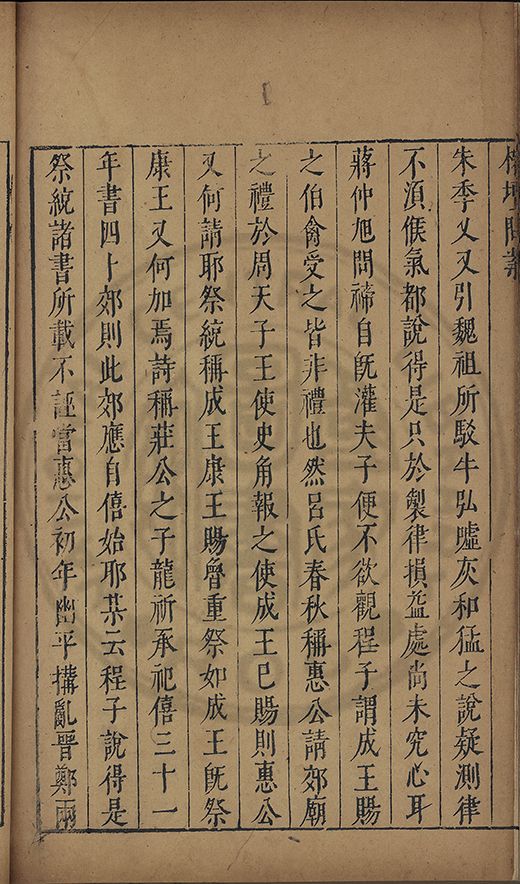 榕壇問業
朱季乂又引魏祖所駁牛弘噓灰和猛之說疑測律
不湏候氣都說得是只於製律損益處尚未究心耳
蔣仲旭問禘自旣灌夫子便不欲觀程子謂成王賜
之伯禽受之皆非禮也然呂氏春秋稱惠公請郊廟
之禮於周天子王使史角報之使成王巳賜則惠公
又何請耶祭統稱成王康王賜魯重祭如成王旣祭
康王又何加焉詩稱莊公之子龍祈承祀僖三十一
年書四卜郊則此郊應自僖始耶某云程子說得是
祭統諸書所載不誣當惠公初年幽平搆亂晉鄭兩